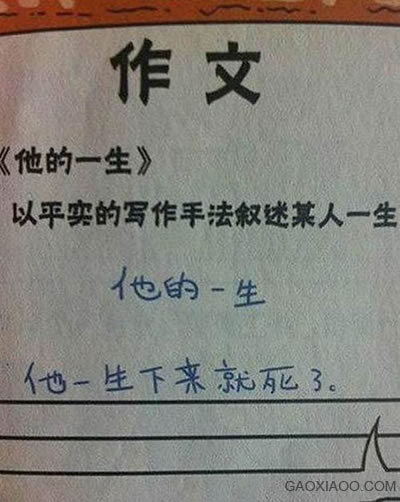 作文
《他的一生》
以平实的写作手法叙述某人一生
他的一生
他一生下来就死了。
GAOXIAOO.COM